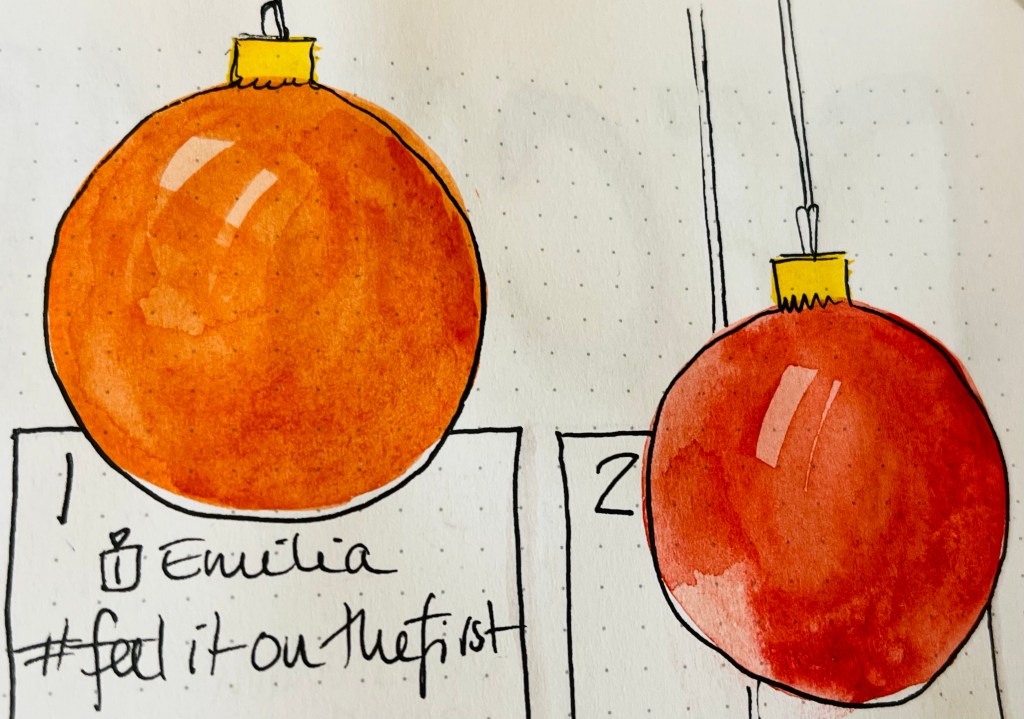 1
Emilia
#feel it on the first
2